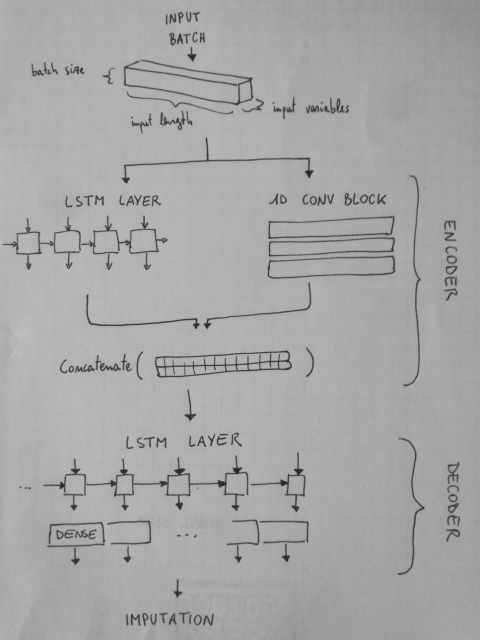 INPUT
BATCH
batch size
input length
input variables
LSTM LAYER
1D CONV BLOCK
ENCODER
Concatenate ( )
LSTM LAYER
...
DECODER
DENSE
...
IMPUTATION